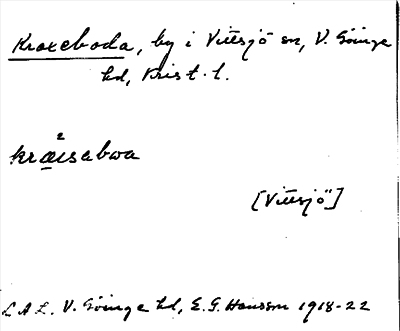 Kroxeboda, by i Vittsjö sn, V. Göinge
hd, Krist. l.
2
kræisabwa
[Vittsjö]
L A L. V. Göinge hd, E. G. Hansson 1918-22